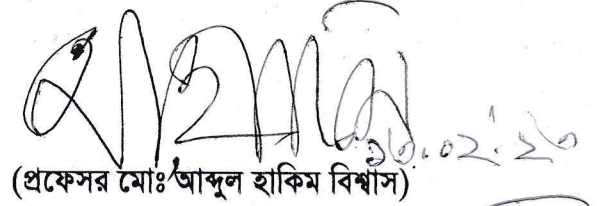 ১৩.০২.২৩
(প্রফেসর মোঃ আব্দুল হাকিম বিশ্বাস)